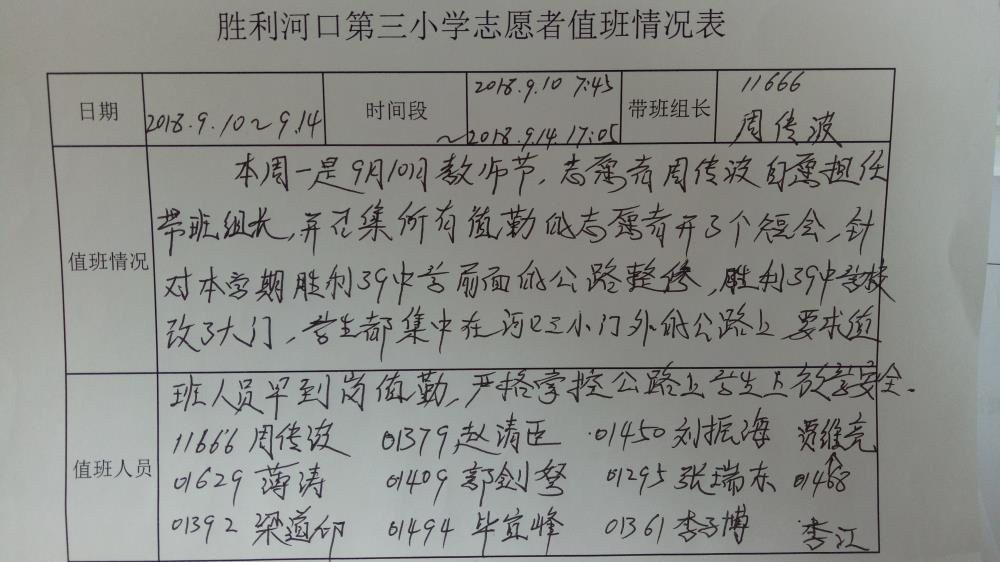 胜利河口第三小学志愿者值班情况表
日期 2018.9.10～9.14 时间段 2018.9.10 7:45 ～2018.9.14.17:05 带班组长 11666 周传波
本周一是9月10日教师节，志愿者周传波自愿担任
带班组长，并召集所有值勤的志愿者开了个短会，针
值班情况
对本学期胜利39中学前面的公路整修，胜利39中学校
改了大门，学生都集中在河口三小门外的公路上，要求值
班人员早到岗值勤，严格掌控公路上学生上放学安全.
值班人员
11666 周传波 01379 赵清臣 01450 刘振海 贾维亮
01629 薄涛 01409 郭剑 01295 张瑞东 01468
01392 梁道 01494 毕宜峰 01361 李博 李江